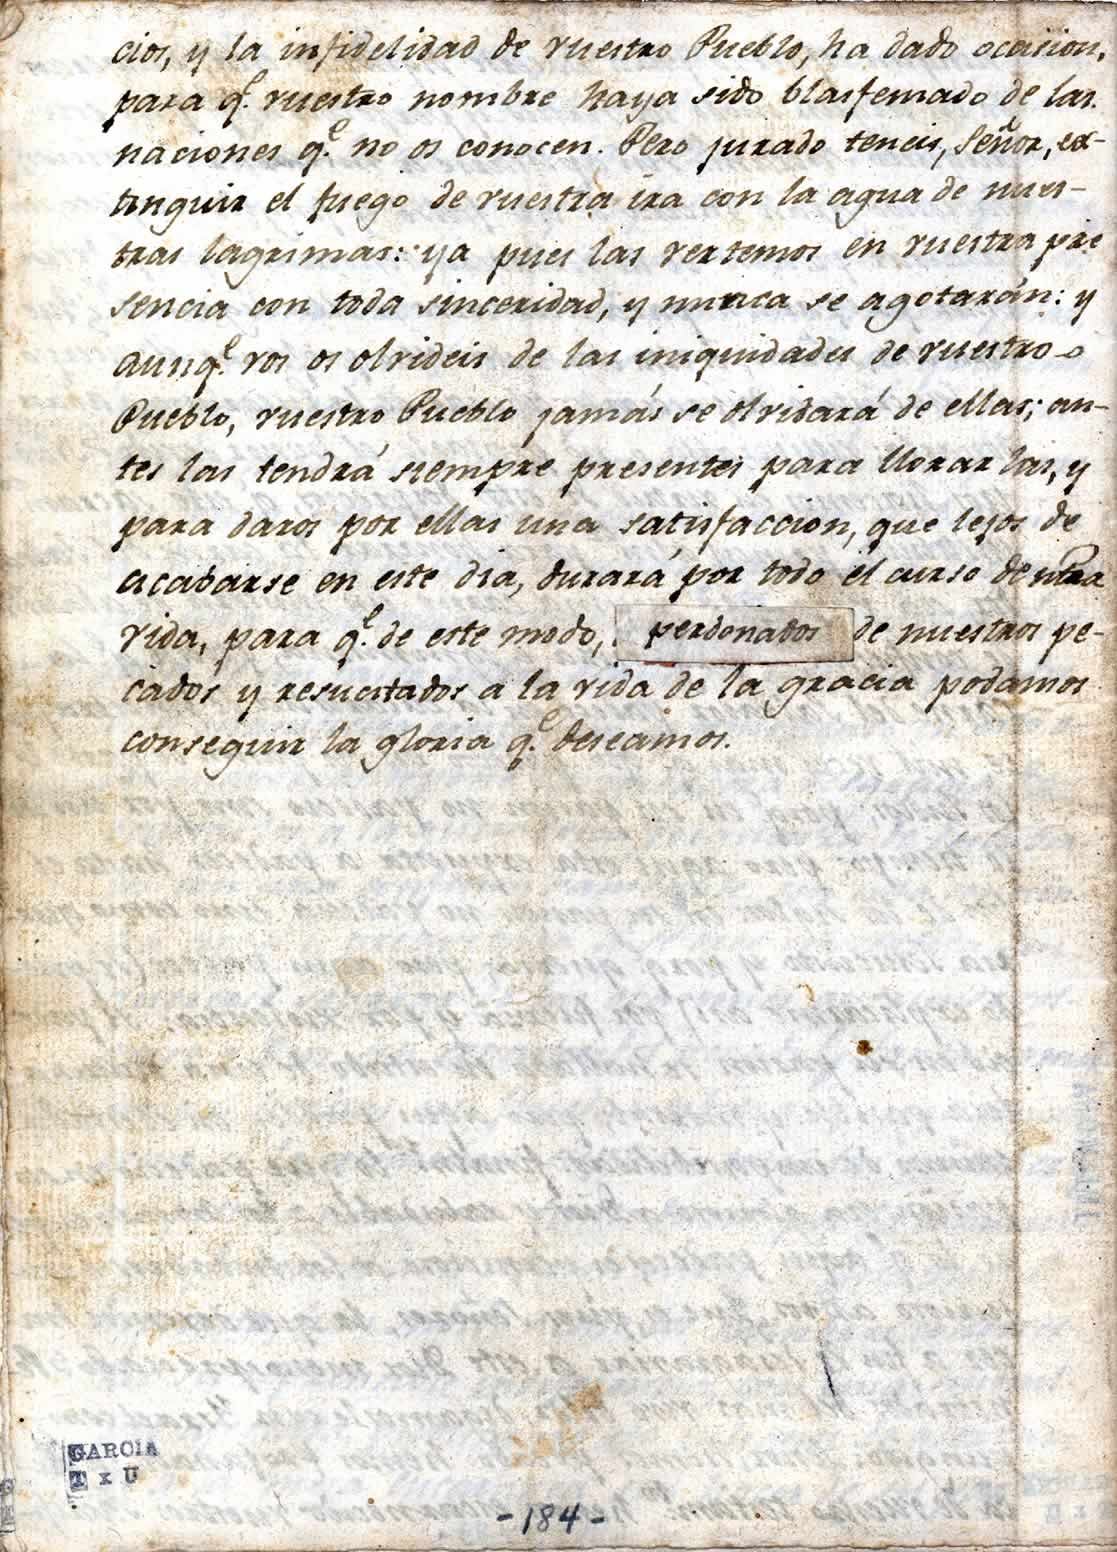 cios, y la infidelidad de vuestro Pueblo, ha dado ocasion,
para q.e vuestro nombre haya sido blasfemado de las
naciones q.e no os conocen. Pero jurado teneis, Señor, ex-
tinguir el fuego de vuestra ira con la agua de nues-
tras lagrimas: ya pues las vertemos en vuestra pre
sencia con toda sinceridad, y nunca se agotarán: y
aunq.e vos os olvideis de las iniquidades de vuestro
Pueblo, vuestro Pueblo jamás se olvidará de ellas; an-
tes las tendrá siempre presentes para llorarlas, y
para daros por ellas una satisfaccion, que lejos de
acabarse en este dia, durará por todo el curso de ntra
vida, para q.e de este modo, perdonados de nuestros pe-
cados y resucitados a la vida de la gracia podamos
conseguir la gloria q.e deseamos.
GARCIA
T x U
- 184 -